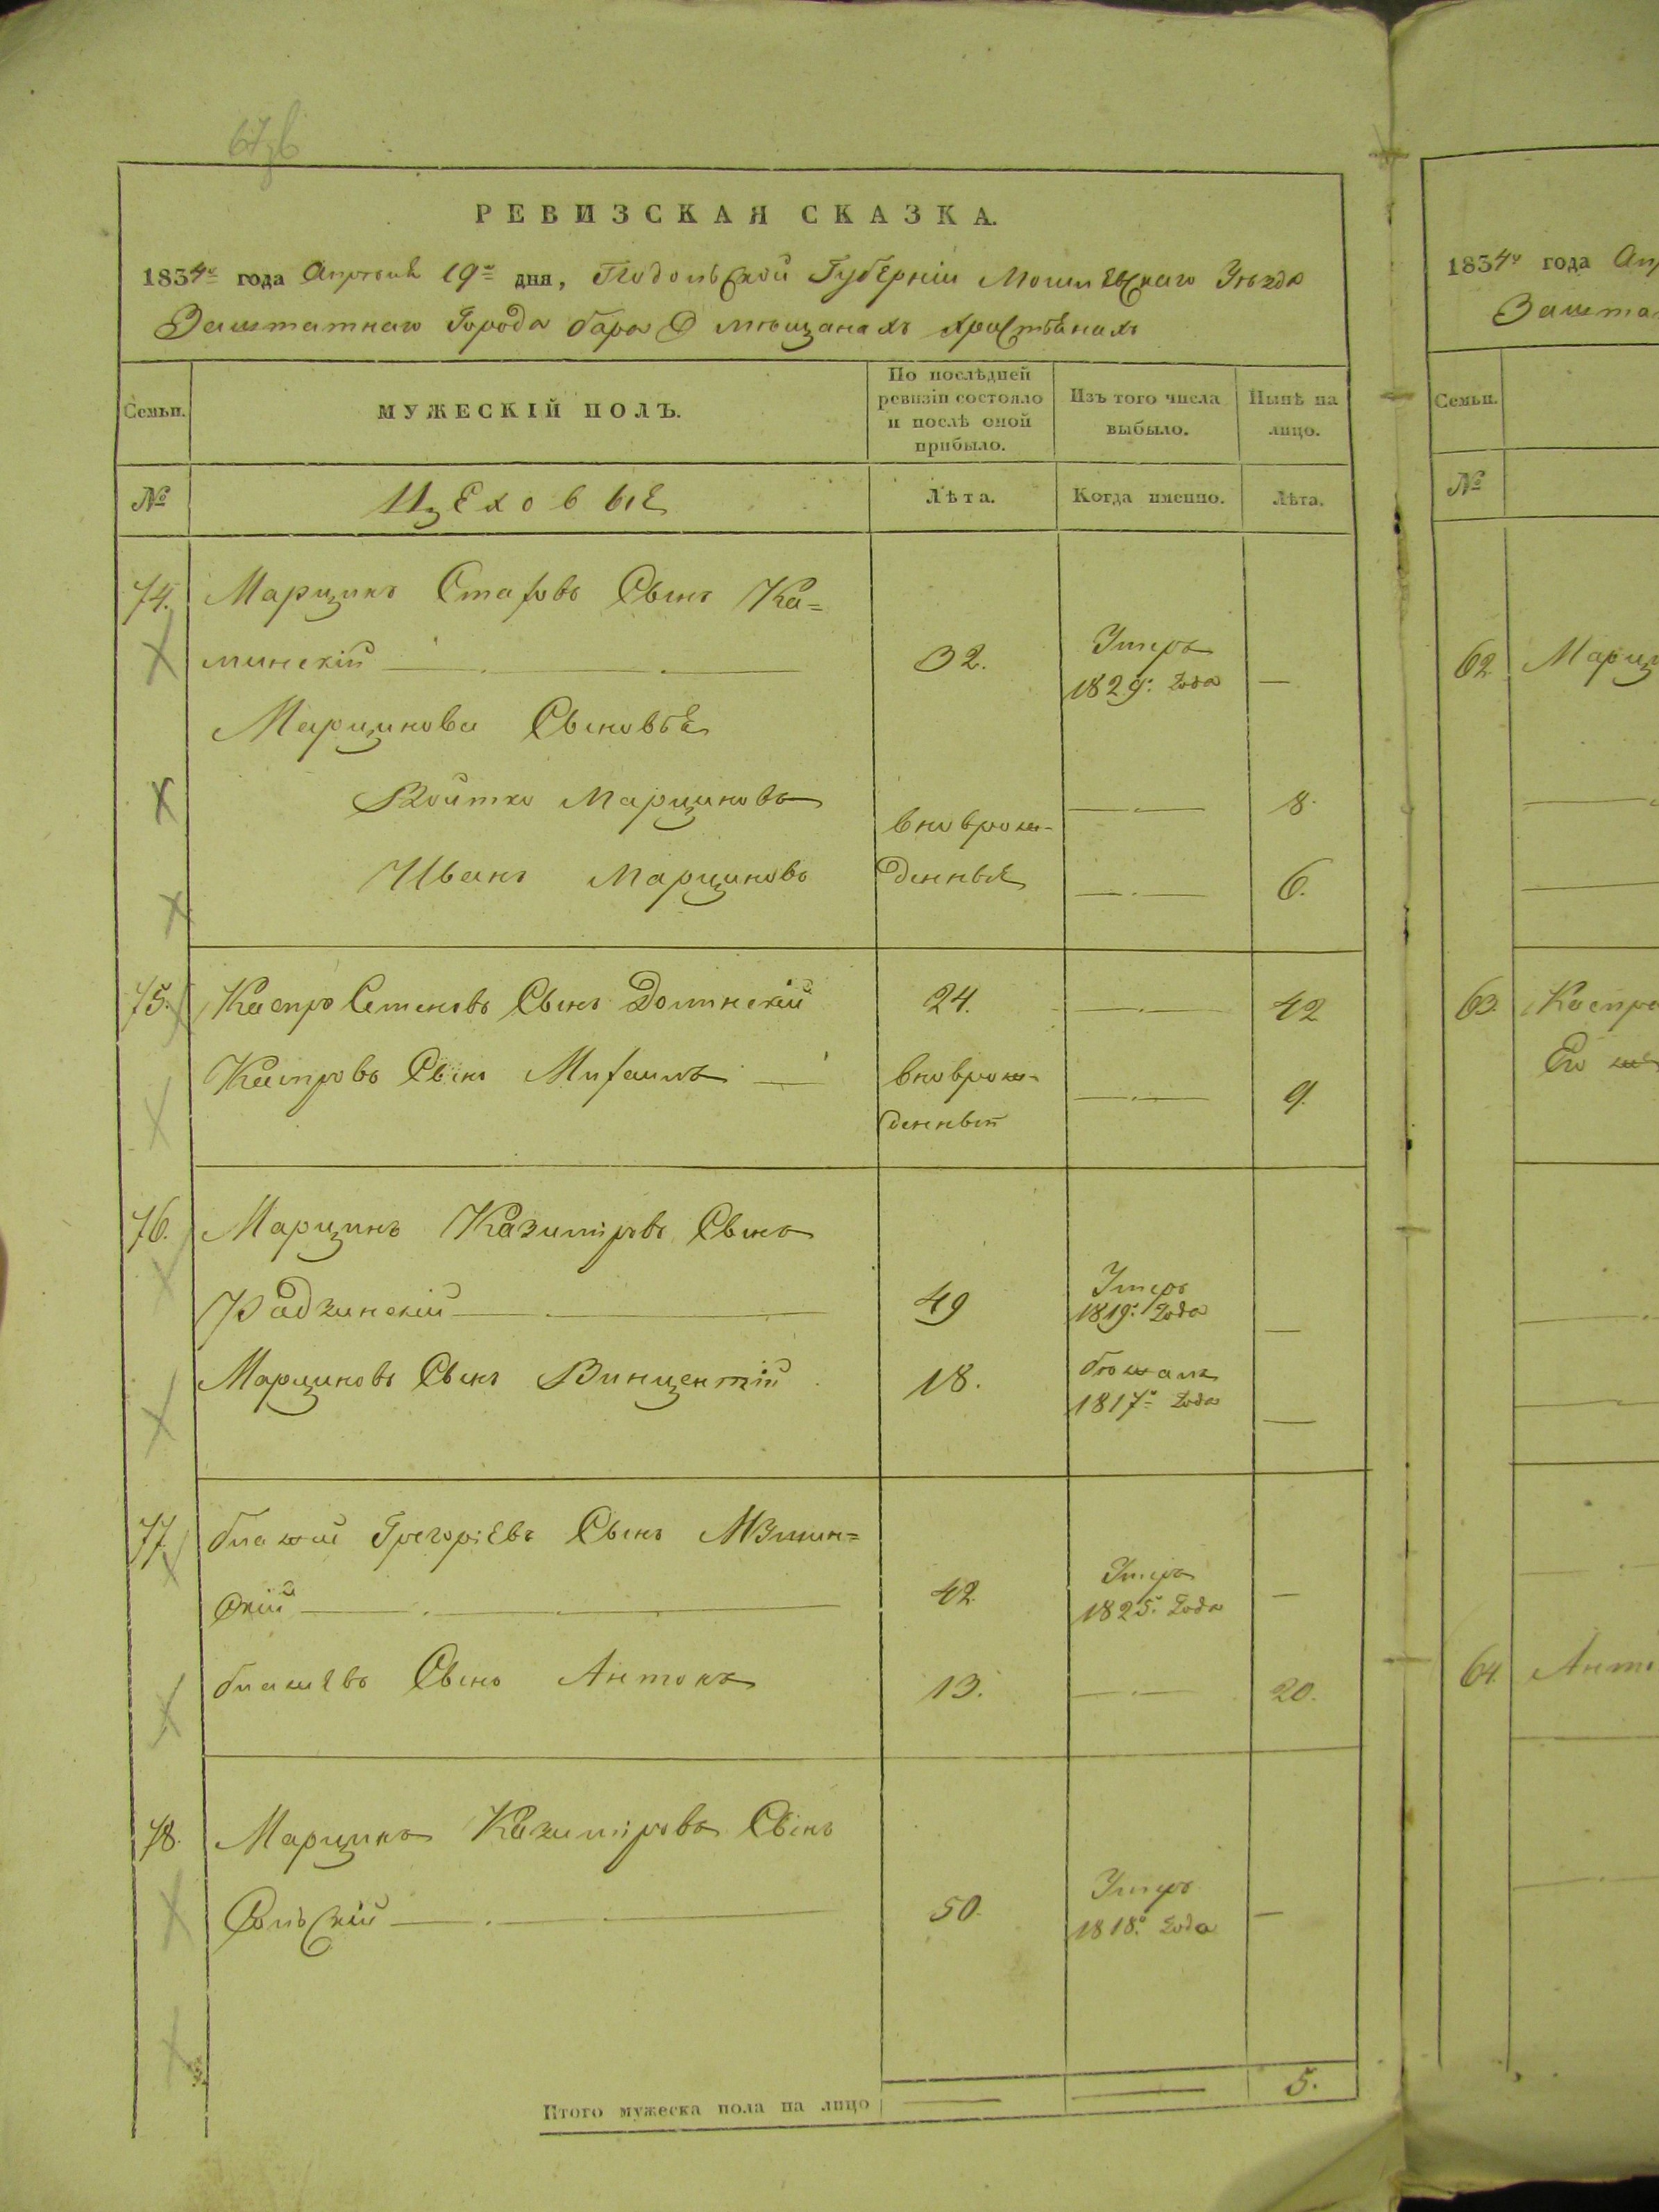 67зв
РЕВИЗСКАЯ СКАЗКА.
1834го года Апреля 19го дня, Подольской Губерніи Могилевскаго Уѣзда
Заштатнаго Города Бара О мѣщанахъ христіянахъ
Семьи.
МУЖЕСКІЙ ПОЛЪ.
По послѣдней ревизіи состояло и послѣ оной прибыло.
Изъ того числа выбыло.
Нынѣ на лицо.
№
Цеховые
Лѣта.
Когда именно.
Лѣта.
74. Марцинъ Стаховъ Сынъ Ка=
минскій 32. Умеръ 1829го года —
Марцинова Сыновья
Войтко Марциновъ 8.
вноврож-
Иванъ Марциновъ денныя 6.
75. Каспро Семеновъ Сынъ Долинскій 24. 42
Каспровъ Сынъ Михаилъ — вноврож- 9.
денный
76. Марцинъ Казиміровъ Сынъ
Радзинскій 49 Умеръ 1819го года —
Марциновъ Сынъ Винцентій 18. бѣжалъ 1817го года —
77. Блажий Грегоріевъ Сынъ
скій 42 Умеръ 1825го года —
Блажѣвъ Сынъ Антонъ 13. 20.
78. Марцинъ Казиміровъ Сынъ
Сольскій 50. Умеръ 1818го года —
Итого мужеска пола на лицо 5.
1834го года
Семьи.
№
62.
63. Каспро
Его
64.